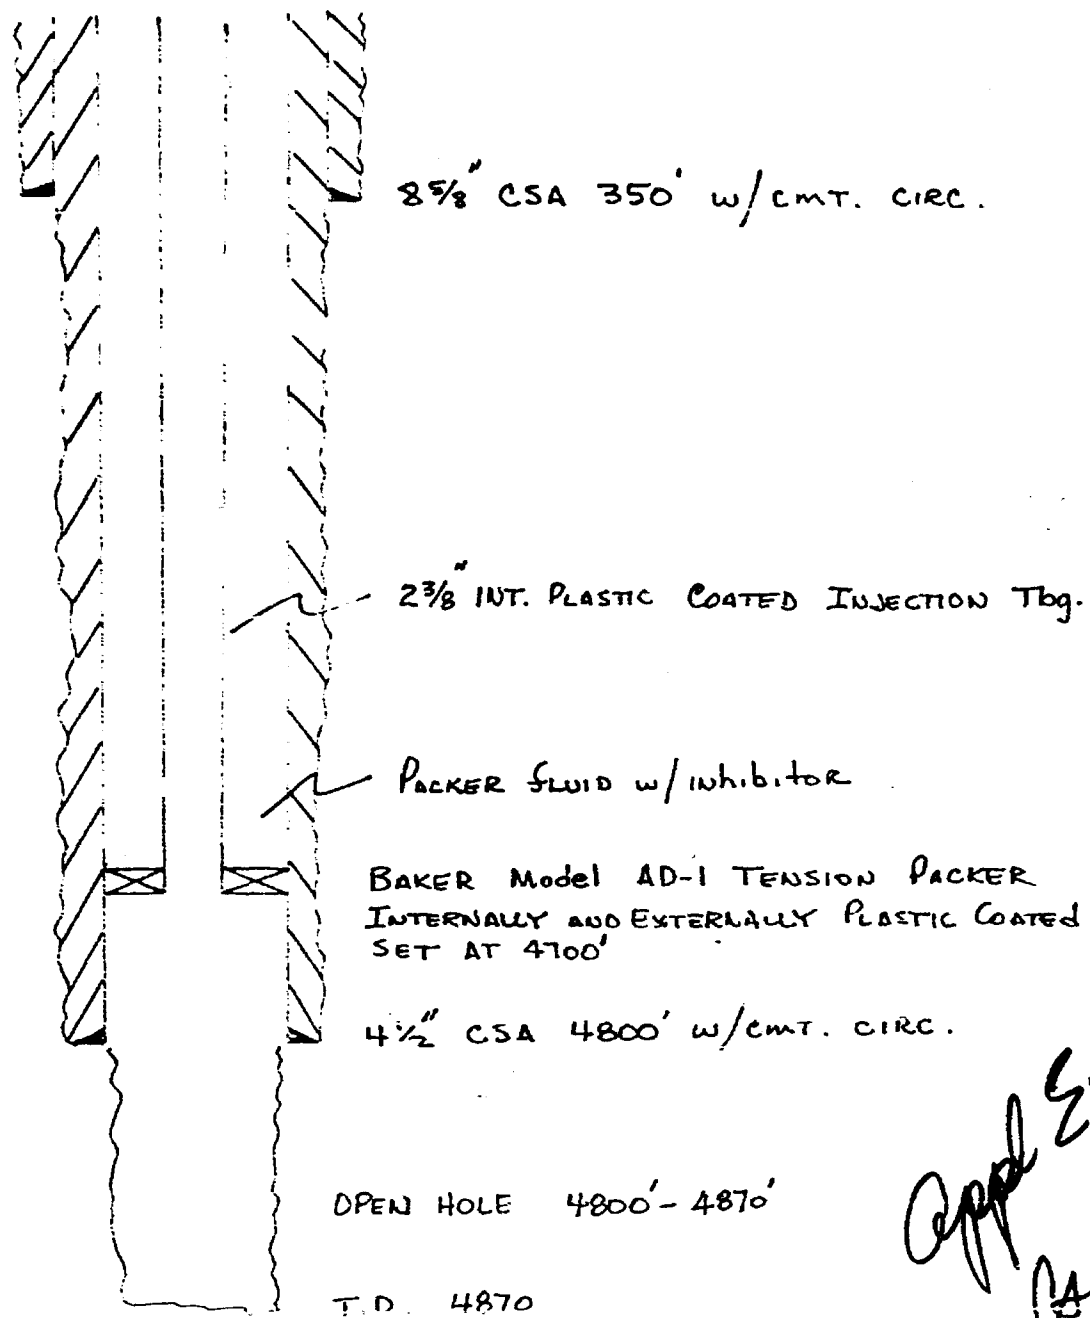 8 5/8" CSA 350' w/ CMT. CIRC.
2 3/8" INT. PLASTIC COATED INJECTION Tbg.
PACKER FLUID w/ INhibitor
BAKER Model AD-1 TENSION PACKER
INTERNALLY AND EXTERNALLY PLASTIC COATEd
SET AT 4700'
4 1/2" CSA 4800' w/ CMT. CIRC.
OPEN HOLE 4800' - 4870'
T.D. 4870
appd